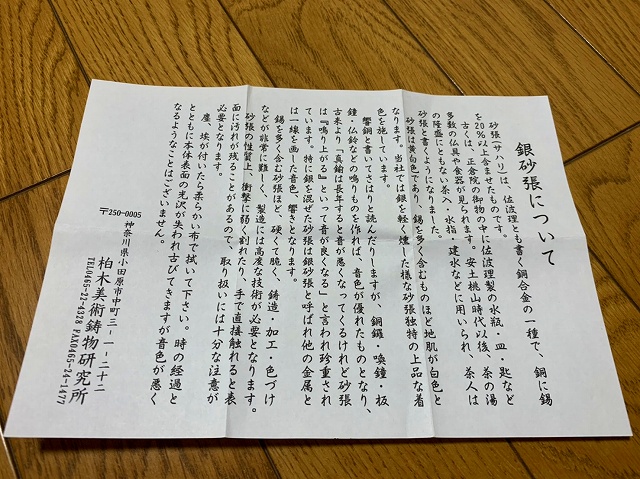 銀砂張について
砂張(サハリ)は、佐波理とも書く銅合金の一種で、銅に錫
を20%以上含ませたものです。
古くは、正倉院の御物の中に佐波理製の水瓶・皿・匙など
多数の仏具や食器が見られます。安土桃山時代以後、茶の湯
の隆盛にともない茶入・水指・建水などに用いられ、茶人は
砂張と書くようになりました。
砂張は黄白色であり、錫を多く含むものほど地肌が白色と
なります。当社では銀を軽く燻した様な砂張独特の上品な着
色を施しています。
響銅と書いてさはりと読んだりしますが、銅鑼・喚鐘・坂
鐘・仏鈴などの鳴りものを作れば、音色が優れたものとなり、
古来より「真鍮は長年すると音が悪くなってくるけれど砂張
は『鳴り上がる』といって音が良くなる」と言われ珍重され
ています。特に銀を混ぜた砂張は銀砂張と呼ばれ他の金属と
は一線を画した音色、響きとなります。
錫を多く含む砂張ほど、硬くて脆く、鋳造・加工・色づけ
などが非常に難しく、製造には高度な技術が必要となります。
砂張の性質上、衝撃に弱く割れたり、手で直接触れると表
面に汚れが残ることがあるので、取り扱いには十分な注意が
必要となります。
塵、埃が付いたら柔らかい布で拭いて下さい。時の経過と
ともに本体表面の光沢が失われ古びてきますが音色が悪く
なるようなことはございません。
〒250-0005
神奈川県小田原市中町三-一-二十二
柏木美術鋳物研究所
TEL0465-22-4328 FAX0465-24-1477